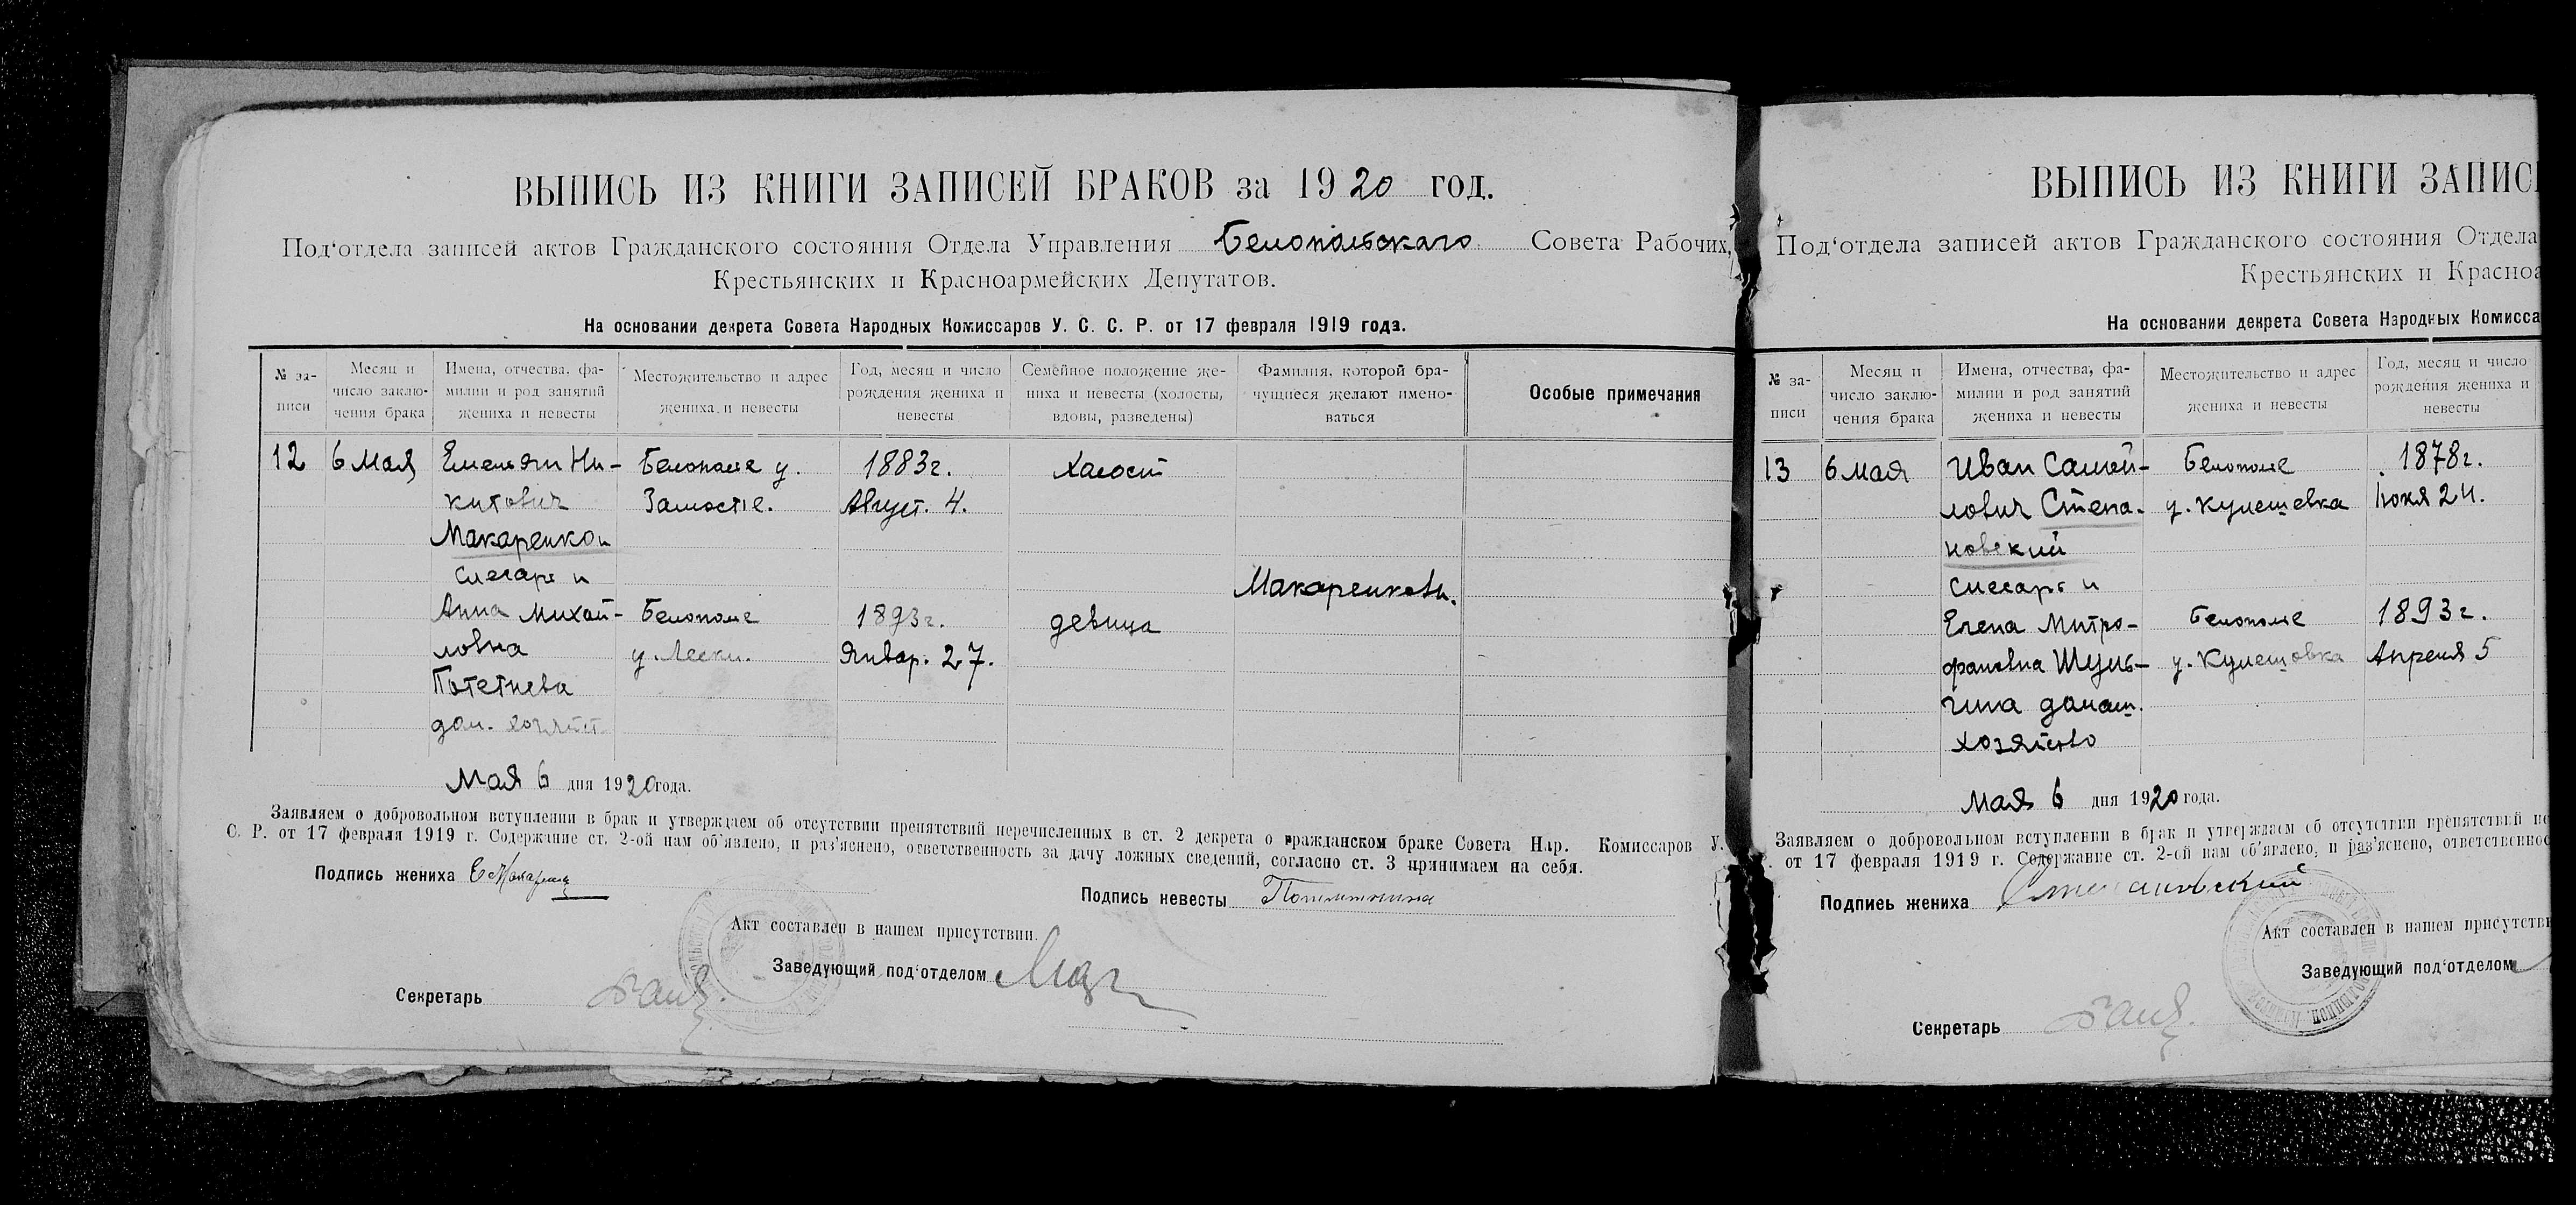 ВЫПИСЬ ИЗ КНИГИ ЗАПИСЕЙ БРАКОВ за 1920 год.
Под‘отдела записей актов Гражданского состояния Отдела Управления Белопольскаго Совета Рабочих,
Крестьянских и Красноармейских Депутатов.
На основании декрета Совета Народных Комиссаров У. С. С. Р. от 17 февраля 1919 года.
№ за-
писи
Месяц и
число заклю-
чения брака
Имена, отчества, фа-
милии и род занятий
жениха и невесты
Местожительство и адрес
жениха и невесты
Год, месяц и число
рождения жениха и
невесты
Семейное положение же-
ниха и невесты (холосты,
вдовы, разведены)
Фамилия, которой бра-
чущиеся желают имено-
ваться
Особые примечания
12 6 Мая Емельян Ни- Белополье у. 1883г. Халост
китович Замостье. Август. 4.
Макаренко
слесарь и
Макаренковы.
Анна Михай- Белополье 1893г. девица
ловна у Лески. Январ. 27.
Потетнева
дом.
Мая 6 дня 1920 года.
Заявляем о добровольном вступлении в брак и утверждаем об отсутствии препятствий перечисленных в ст. 2 декрета о гражданском браке Совета Нар. Комиссаров У.
С. Р. от 17 февраля 1919 г. Содержание ст. 2-ой нам об‘явлено, и раз‘яснено, ответственность за дачу ложных сведений, согласно ст. 3 принимаем на себя.
Подпись жениха
Подпись невесты
Акт составлен в нашем присутствии.
Заведующий под‘отделом
Секретарь
ВЫПИСЬ ИЗ КНИГИ ЗАПИС
Под‘отдела записей актов Гражданского состояния Отдела
Крестьянских и Красноа
На основании декрета Совета Народных Комисса
№ за-
писи
Месяц и
число заклю-
чения брака
Имена, отчества, фа-
милии и род занятий
жениха и невесты
Местожительство и адрес
жениха и невесты
Год, месяц и число
рождения жениха и
невесты
13 6 мая Иван Самой- Белополье 1878г.
лович Степа- у. Кулешевка Июня 24.
новский
слесарь и
Елена Митро- Белополье 1893г.
фановна Шуль- у. Кулешовка Апреля 5
гина домаш.
хозяйство
Мая 6 дня 1920 года.
Заявляем о добровольном вступлении в брак и утверждаем об отсутствии препятствий пе
от 17 февраля 1919 г. Содержание ст. 2-ой нам об‘явлено, и раз‘яснено, ответственнос
Подпись жениха Степановский
Акт составлен в нашем присутстви
Заведующий под‘отделом
Секретарь